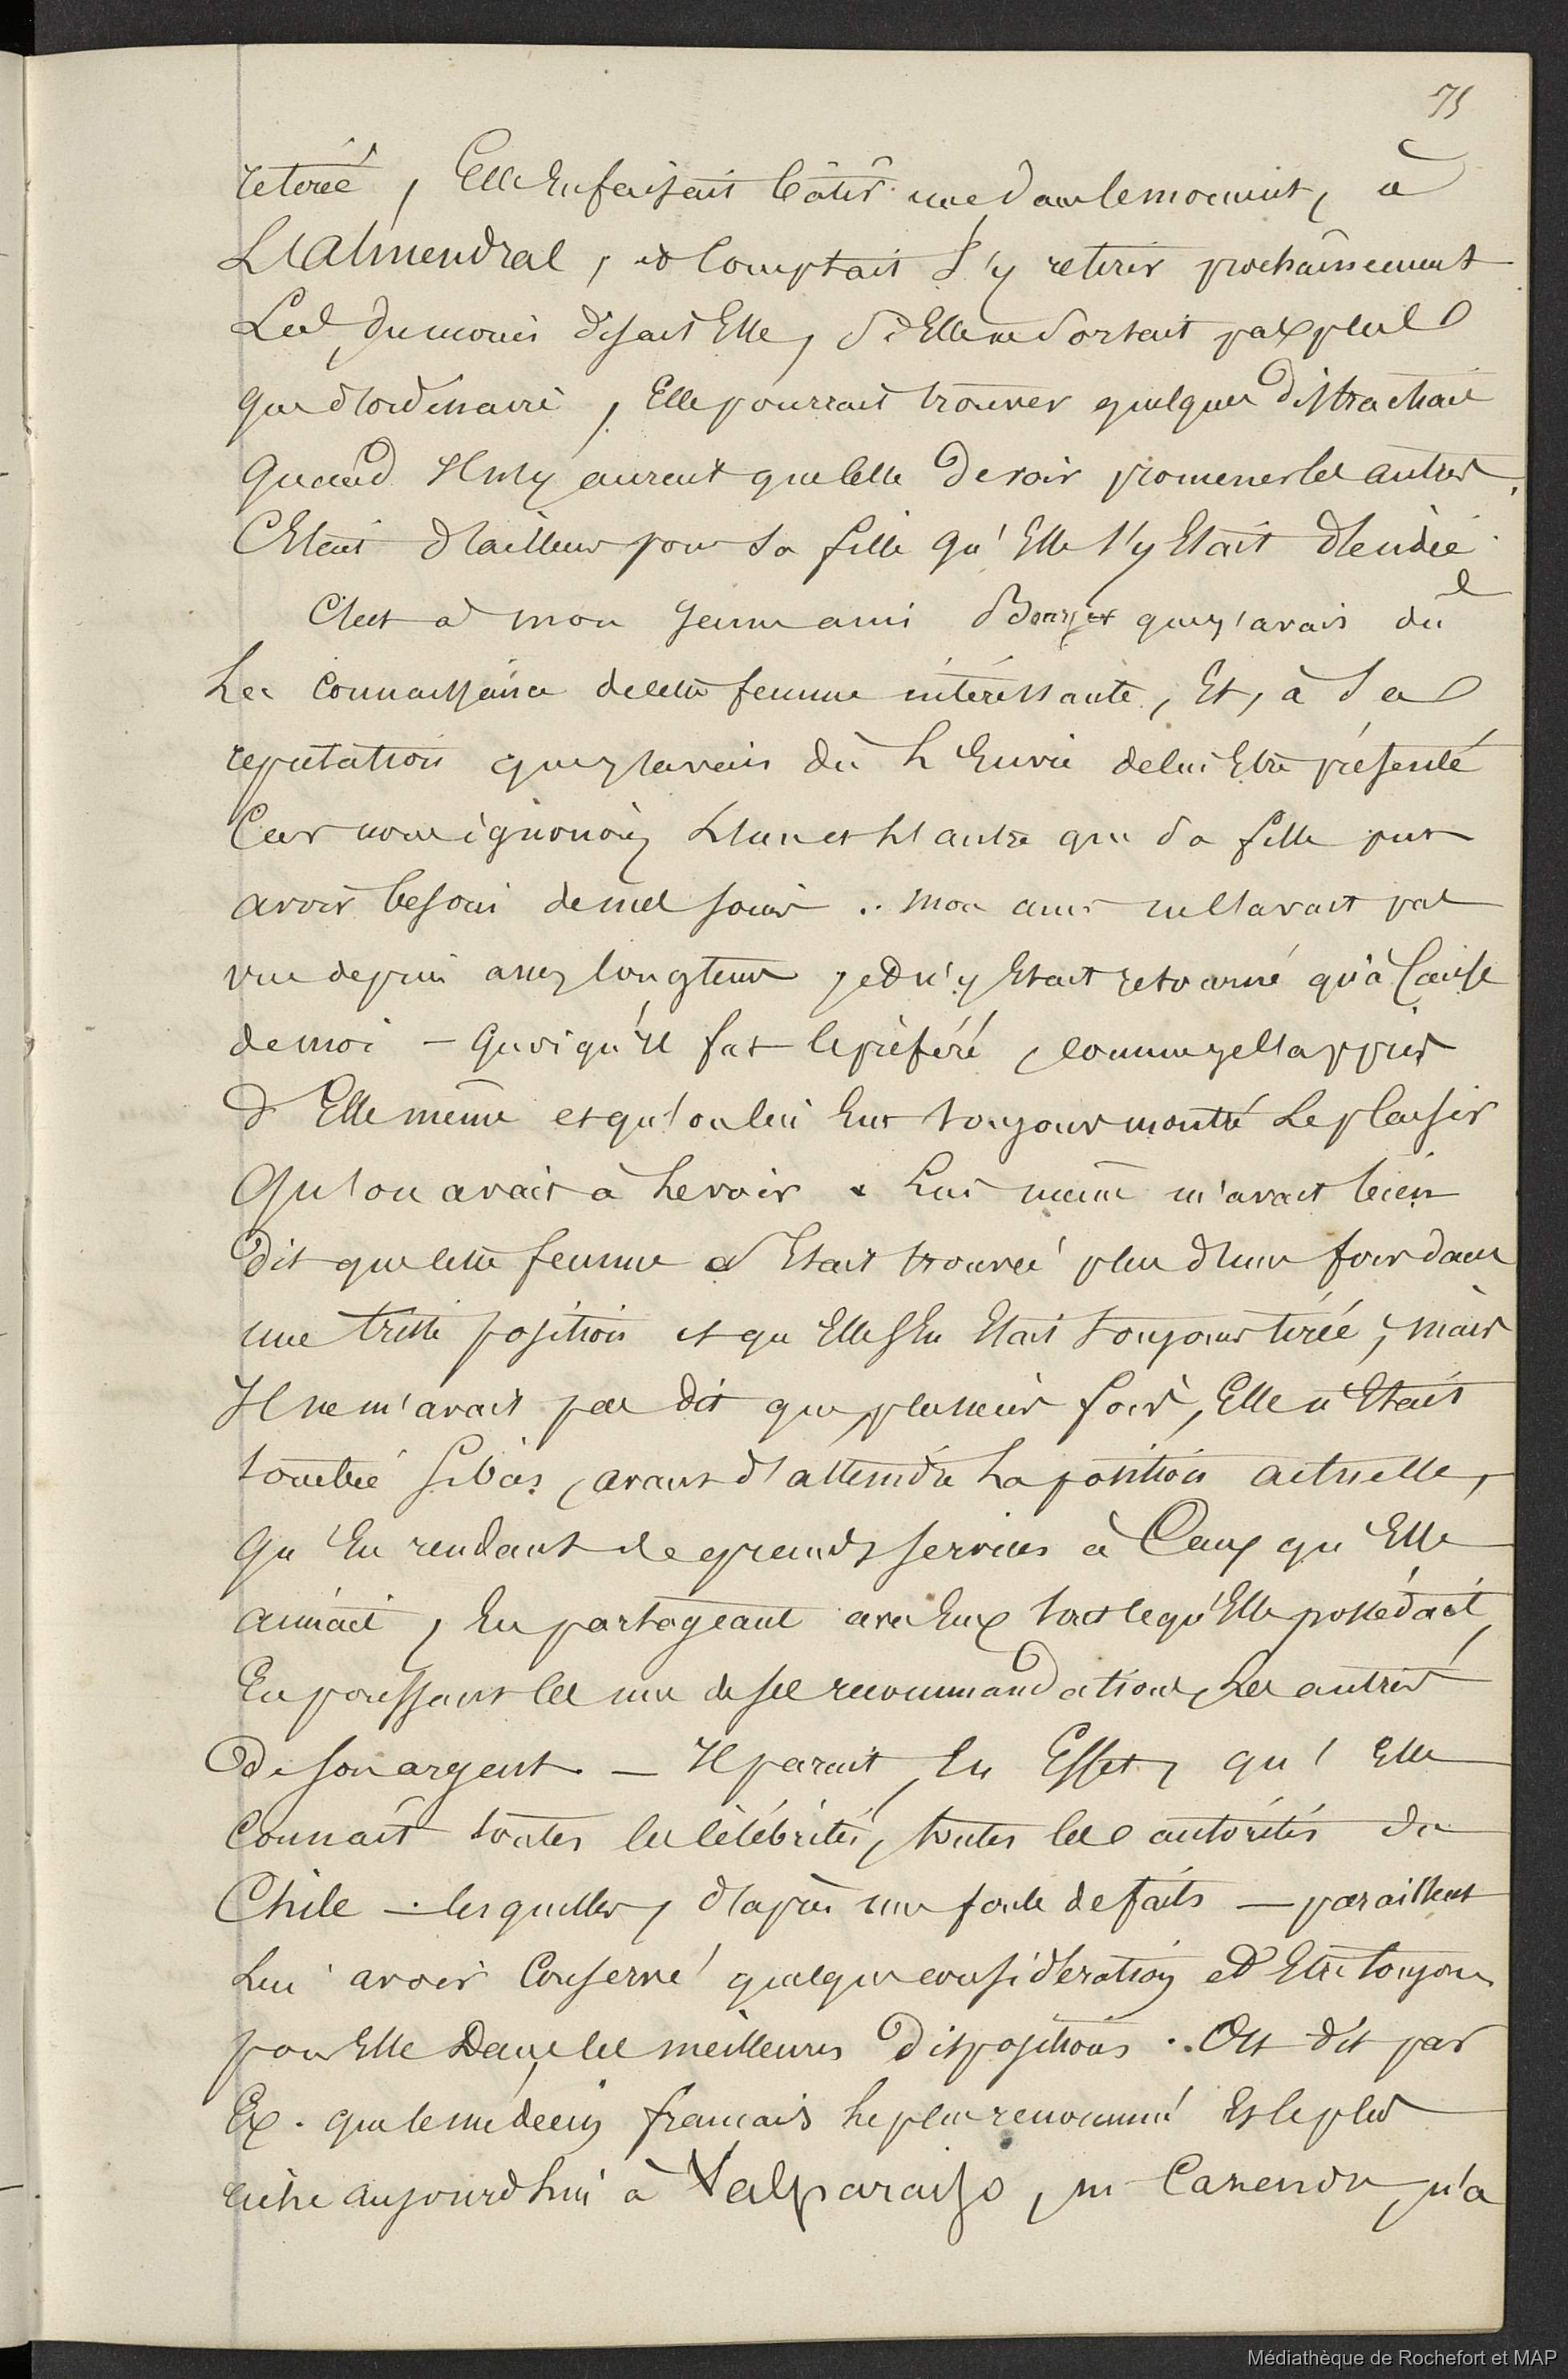 75
retirée, Elle En faisait bâtir une dans le moment, à
L'Almendral, et Comptait s'y retirer prochainement
Là du moins disait Elle, si Elle ne sortait pas plus
que d'ordinaire, Elle pourrait trouver quelques distractions
quand Il n'y aurait que Celle de voir promener les autres.
C'Etait d'ailleurs pour sa fille qu'Elle s'y Etait décidée
C'est à mon jeune ami que j'avais dû
La Connaissance de cette femme intéressante, Et, à sa
réputation que j'avais dû L'Envie de lui Etre présenté
Car nous ignorions L'un et L'autre que sa fille put
avoir besoin de mes soins .. mon ami ne l'avait pas
vue depuis assez longtems et n'y Etait retourné qu'à Cause
de moi — quoiqu'Il fut le préféré, comme je l'appris
d'Elle même et qu'on lui Eut toujours montré Le plaisir
Qu'on avait à Le voir. Lui même m'avait bien
dit que cette femme s'Etait trouvée plus d'une fois dans
une triste position et qu'Elle s'En Etait toujours tirée; mais
Il ne m'avait pas dit que, plusieurs fois, Elle n'Etait
tombée si bas, avant d'atteindre La position actuelle,
qu'En rendant de grands services à Ceux qu'Elle
aimait, En partageant avec Eux tout ce qu'Elle possédait,
En poussant les uns de ses recommandations, Les autres
de son argent. — Il parait, En Effet, qu'Elle
Connait toutes les Célébrités, toutes les autorités du
Chile — lesquelles, d'après une foule de faits — paraissent
Lui avoir Conservé quelque considération et Etre toujours
pour Elle Dans les meilleures dispositions .. On dit par
Ex. que le médecin français Le plus renommé Et le plus
riche aujourd'hui à Valparaiso, m n'a
Médiathèque de Rochefort et MAP